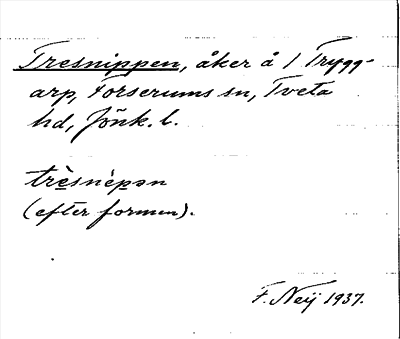 Tresnippen, åker å 1 Trygg-
arp, Forserums sn, Tveta
hd, Jönk. l.
trèsnépən
(efter formen).
F. Neij 1937.